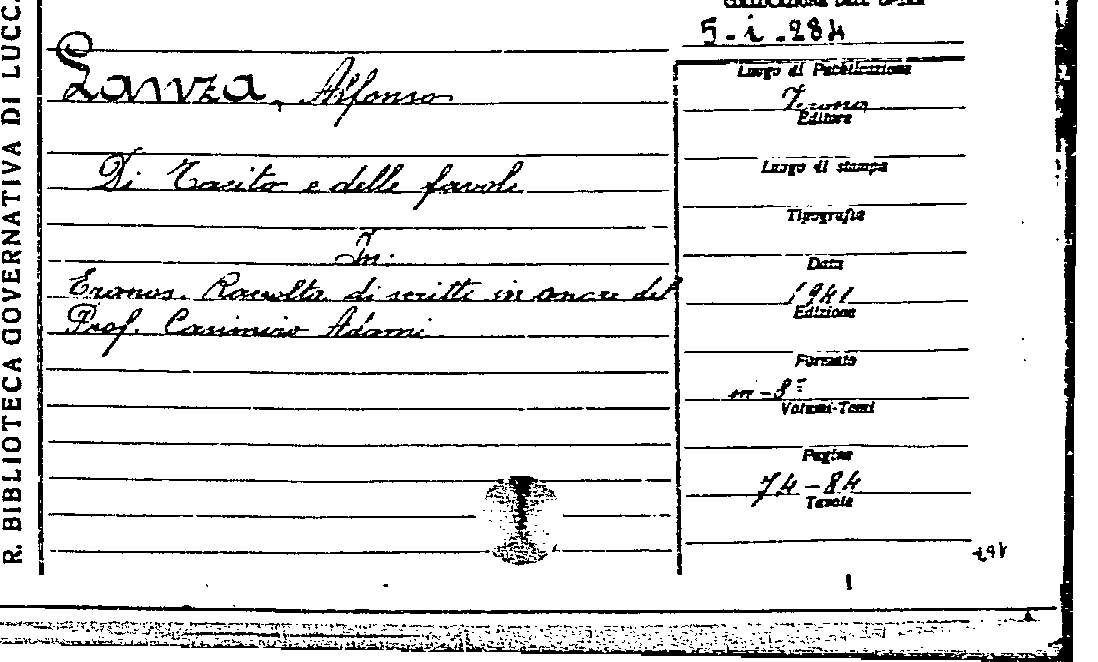 R. BIBLIOTECA GOVERNATIVA DI LUCC
Lanza, Alfonso
Di Tacito e delle favole
In:
Eranos. Raccolta di scritti in onore del
Prof. Casimiro Adami
COLLOCAZIONE DELL'OPERA
5-i-284
Luogo di Pubblicazione
Verona
Editore
Luogo di stampa
Tipografia
Data
1941
Edizione
Formato
in-8°
Volumi-Tomi
Pagine
74-84
Tavole